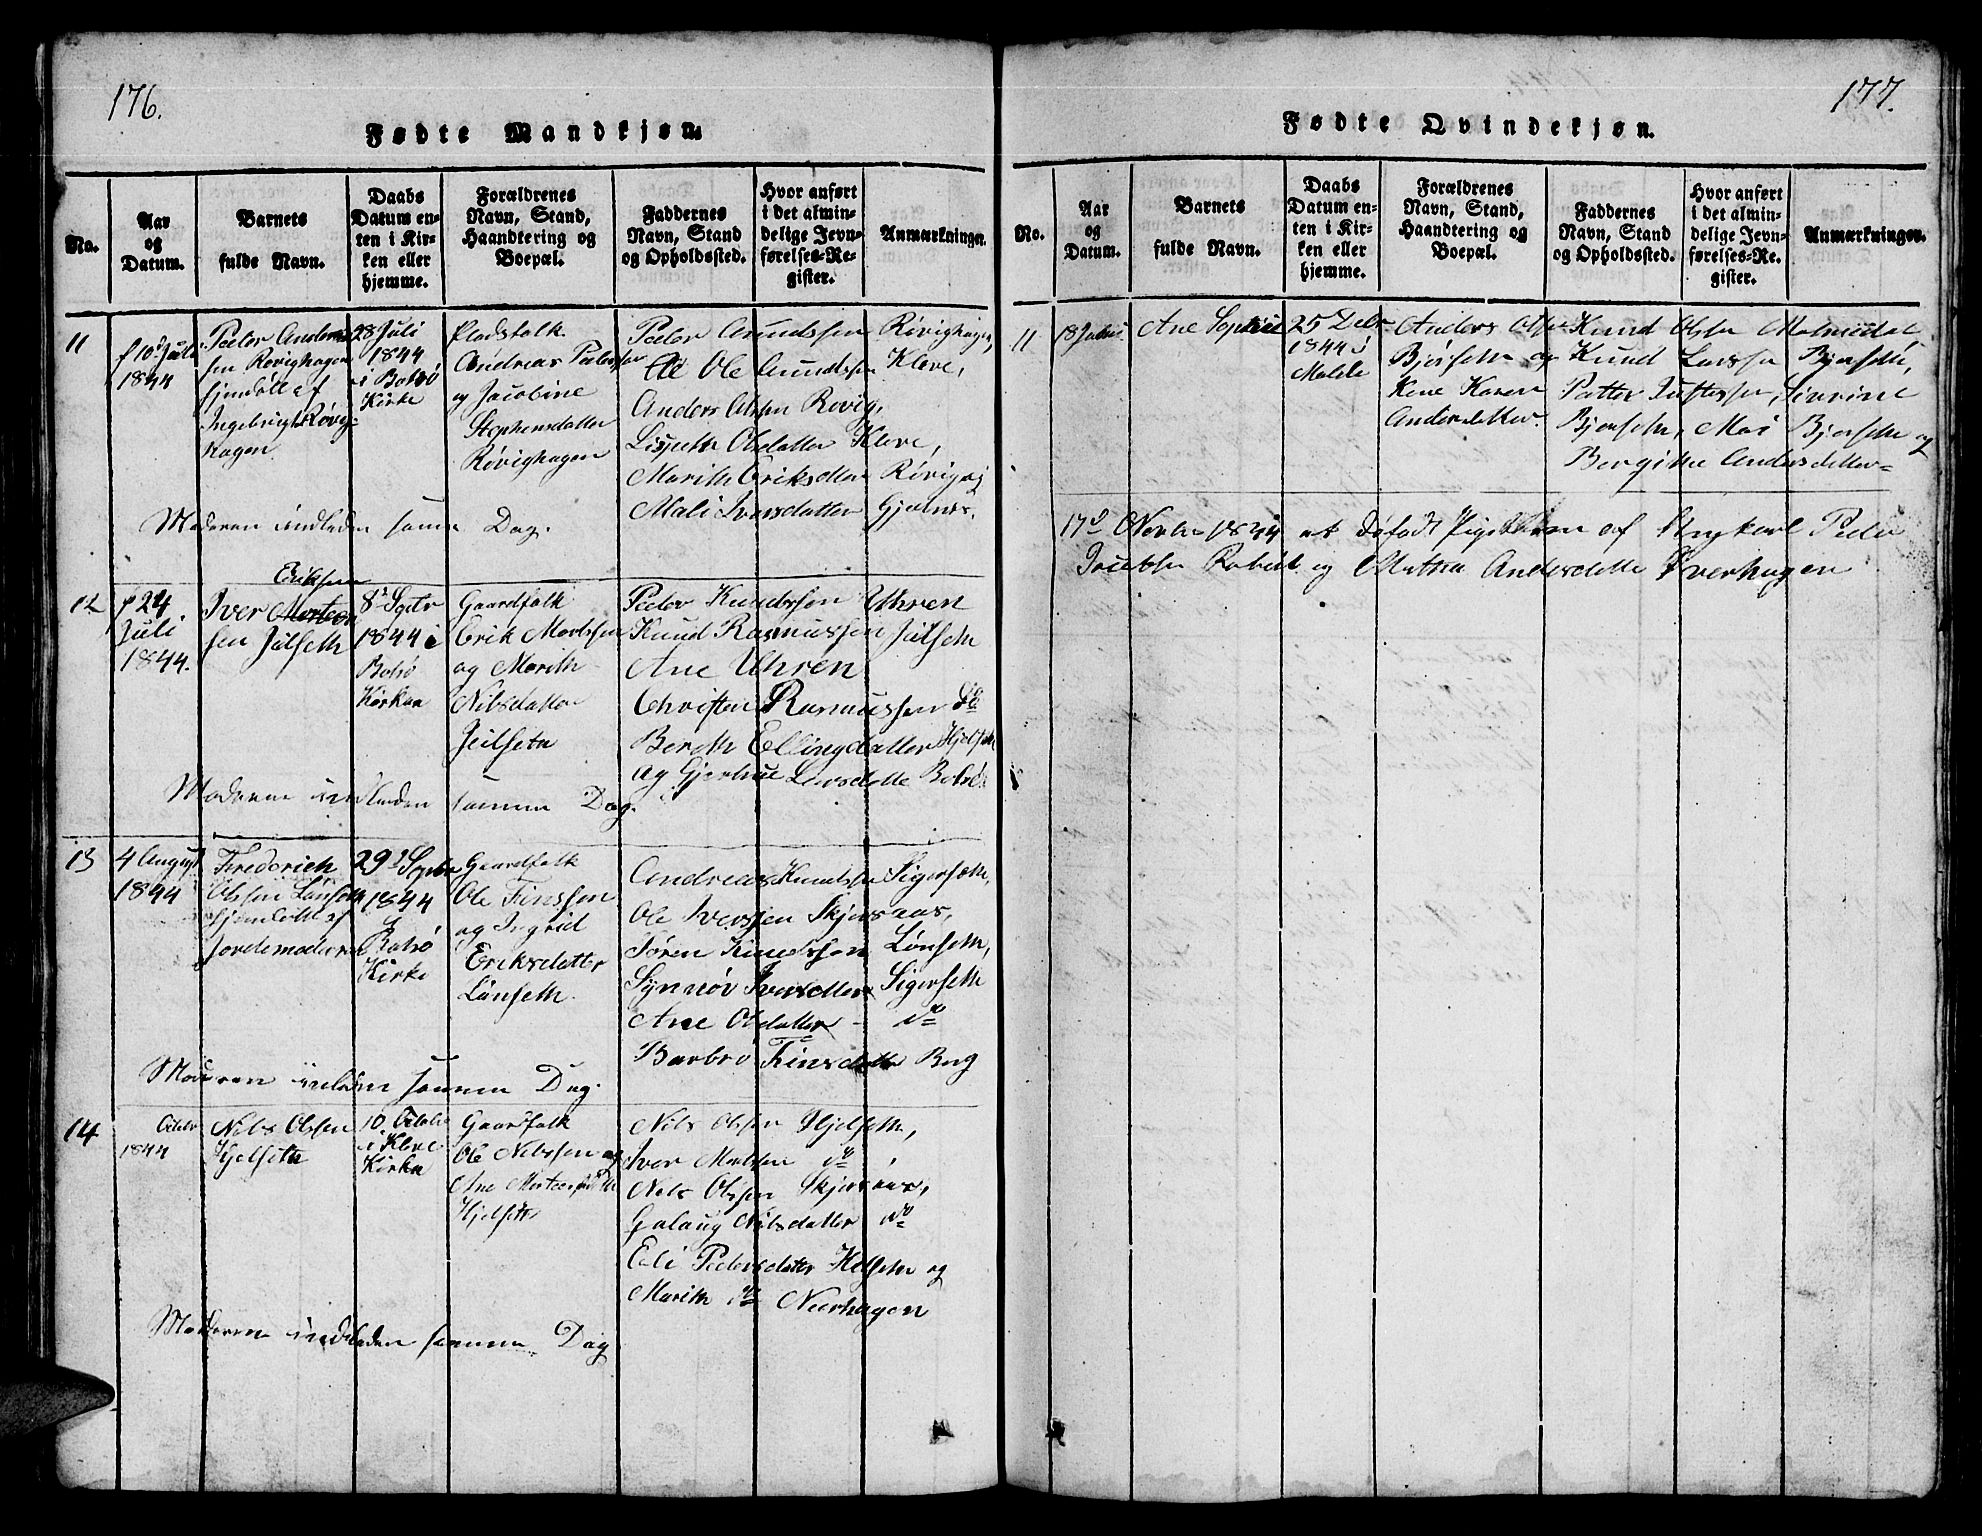 176.
Fødte Mandkjøn.
No.
Aar
og
Datum.
Barnets
fulde Navn.
Daabs
Datum en-
ten i Kir-
ken eller
hjemme.
Forældrenes
Navn, Stand,
Haandtering og
Boepæl.
Faddernes
Navn, Stand
og Opholdssted.
Hvor anført
i det almin-
delige Jevn-
førelses-Re-
gister.
Anmærkninger.
11
f 10 Juli
1844
Peder Andreas
sen Røvighagen
hjemdøbt af
Ingebrigt Røvig-
hagen
28 Juli
1844
i Bolsø
Kirke
Pladsfolk
Andreas Peterssen
og Jacobine
Stephensdatter
Røvighagen
Peder Amundssen Røvighagen,
Ole Amundssen Kleve,
Anders Olssen Røvig,
Lisbeth Olsdatter Kleve,
Marith Eriksdtter Røvig og
Mali Iversdatter Gjelnes.
Moderen indleden samme Dag.
12
f 24
Juli
1844.
Erikssen
Iver Morten
sen Julseth
8 Septr
1844 i
Bolsø
Kirke
Gaardfolk
Erik Mortssen
og Marith
Nilsdatter
Julseth
Peder Knudssen Uhren
Knud Rasmussen Julseth
Ane Uhren
Christen Rasmussen do
Bereth Ellingdatter Hjelseth
og Gjertrue Larsdatte Bolsø
Moderen indleden samme Dag.
13
4 August
1844
Frederich
Olssen Lønseth
hjemdøbt af
Jordemoderen
29 Septbr
1844
Bolsø
Kirke
Gaardfolk
Ole Finssen
og Ingrid
Eriksdatter
Lønseth
Andreas Knudssen Sigerseth,
Ole Iverssen Skjersaas,
Søren Knudssen Lønseth,
Synnøv Iversdatter Sigerseth
Ane Olsdatter do
Barbro Finsdatter Berg
Moderen indleden samme Dag.
14
Octobr
1844
Nils Olssen
Hjelseth
10 Octobr
i Kleve
Kirke
Gaardfolk
Ole Nilssen og
Ane Mortensdatter
Hjelseth
Nils Olssen Hjelseth,
Iver Mortssen do,
Nils Olssen Skjersaas,
Golaug Nilsdatter do
Eli Pedersdatter Hjelseth og
Marith do Neerhagen
Moderen indleden samme Dag
177.
Fødte Qvindekjøn.
No.
Aar
og
Datum.
Barnets
fulde Navn.
Daabs
Datum en-
ten i Kir-
ken eller
hjemme.
Forældrenes
Navn, Stand,
Haandtering og
Boepæl.
Faddernes
Navn, Stand
og Opholdssted.
Hvor anført
i det almin-
delige Jevn-
førelses-Re-
gister.
Anmærkninger.
11
18 Juli
Ane Sophie
25 Debr
1844 i
Molde
Anders Olsen
Bjørseth og
Kone Karen
Andersdatter.
Knud Olsen Malmedal
Knud Larssen Bjørseth,
Petter Justessen, Sivrine
Bjørseth, Mari Bjørseth og
Bergithe Andersdatter
17d Novbr 1844 et dødfødt Pigebarn af Peder
Jacobsen og Mathea Andersdatte Øverhagen